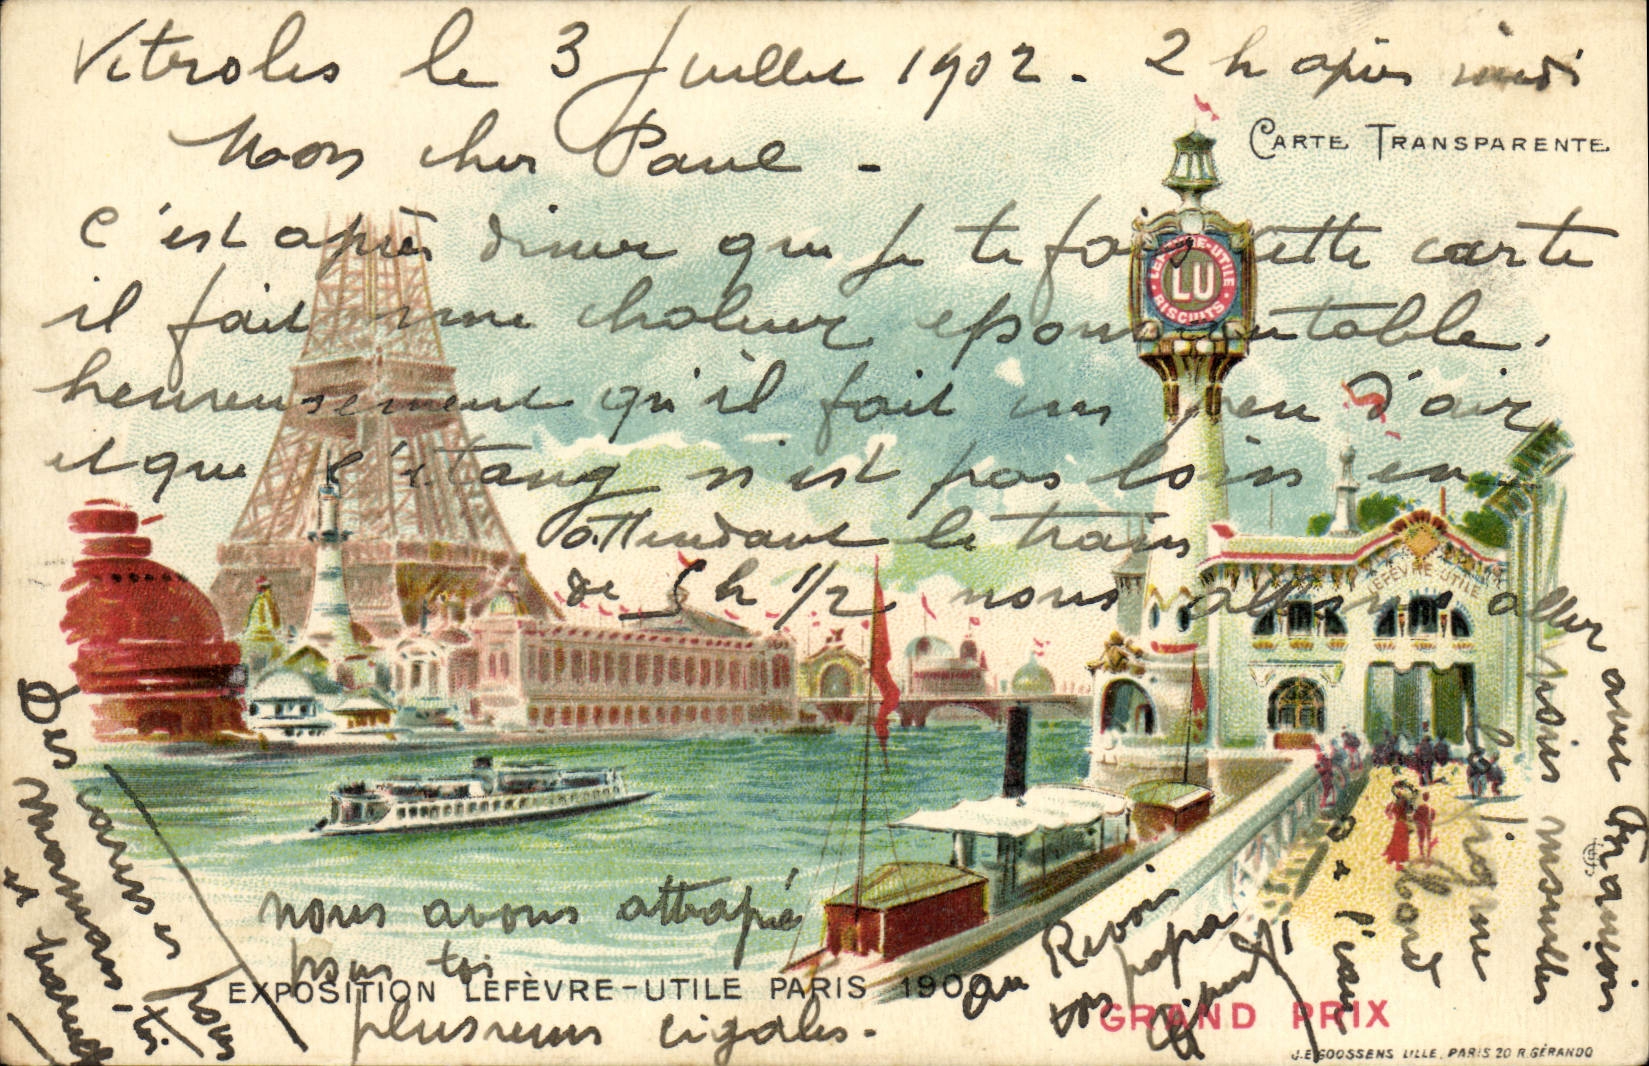 Vitroles le 3 Juillet 1902 - 2 h après midi
CARTE TRANSPARENTE
Mon cher Paul -
c'est après diner que je te fais cette carte
il fait une chaleur epouventable.
heureusement qu'il fait un peu d'air
et que l'étang n'est pas loin en
attendant le train
de 5 h 1/2 nous allons aller
avec François
poser mouiller
la ligne
au bord
de l'eau
LEFÈVRE-UTILE
LU
BISCUITS
LEFÈVRE-UTILE
nous avons attrapé
pour toi
plusieurs cigales.
Des caresses pour
maman, toi
et
au Revoir
ton papa
EXPOSITION LEFÈVRE-UTILE PARIS 1900
GRAND PRIX
J.E. GOOSSENS LILLE, PARIS 20 R. GÉRANDO